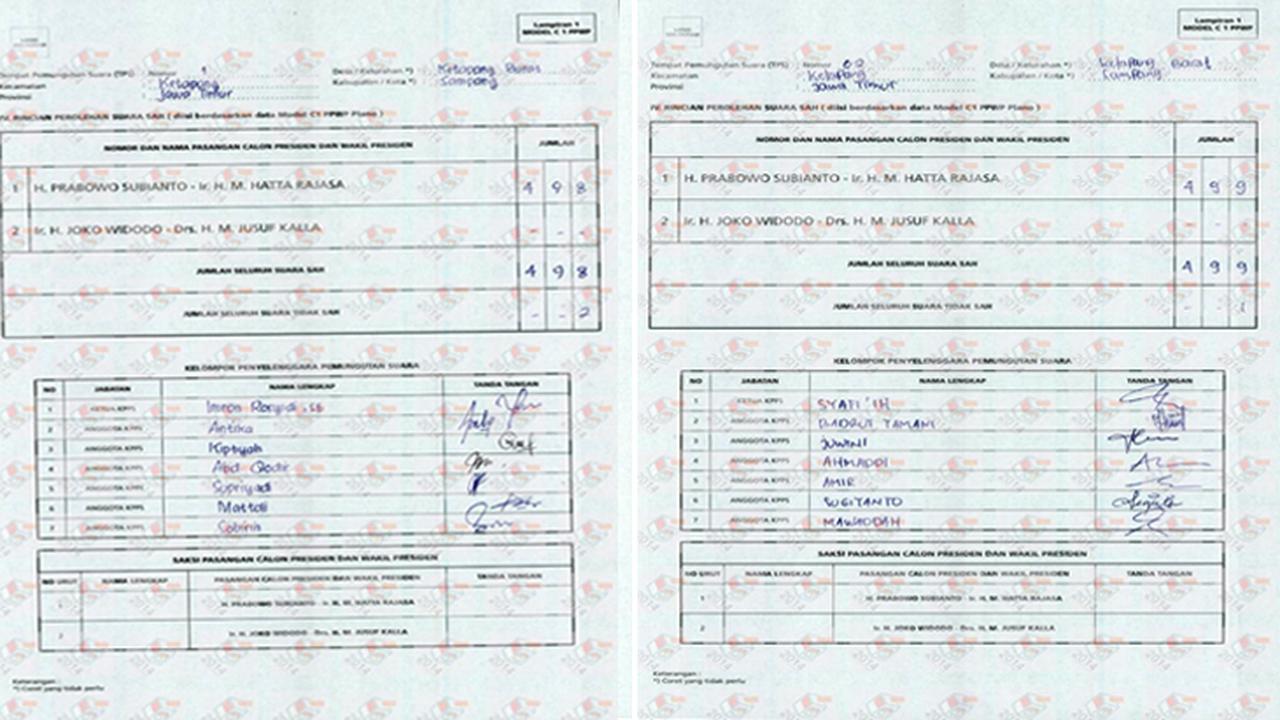 Lampiran 1
MODEL C 1 PPWP
Tempat Pemungutan Suara (TPS) : Nomor 1 Desa / Kelurahan *) : Ketapang Barat
Kecamatan : Ketapang Kabupaten / Kota *) : Sampang
Provinsi : Jawa Timur
IV. RINCIAN PEROLEHAN SUARA SAH ( diisi berdasarkan data Model C1 PPWP Plano )
NOMOR DAN NAMA PASANGAN CALON PRESIDEN DAN WAKIL PRESIDEN JUMLAH
1 H. PRABOWO SUBIANTO - Ir. H. M. HATTA RAJASA 4 9 8
2 Ir. H. JOKO WIDODO - Drs. H. M. JUSUF KALLA - - -
JUMLAH SELURUH SUARA SAH 4 9 8
JUMLAH SELURUH SUARA TIDAK SAH - - 2
KELOMPOK PENYELENGGARA PEMUNGUTAN SUARA
NO JABATAN NAMA LENGKAP TANDA TANGAN
1 KETUA KPPS Imron Rosyidi
2 ANGGOTA KPPS Antika
3 ANGGOTA KPPS Kiptiyah
4 ANGGOTA KPPS Abd Qodir
5 ANGGOTA KPPS Supriyadi
6 ANGGOTA KPPS Mattali
7 ANGGOTA KPPS
SAKSI PASANGAN CALON PRESIDEN DAN WAKIL PRESIDEN
NO URUT NAMA LENGKAP PASANGAN CALON PRESIDEN DAN WAKIL PRESIDEN TANDA TANGAN
1 H. PRABOWO SUBIANTO - Ir. H. M. HATTA RAJASA
2 Ir. H. JOKO WIDODO - Drs. H. M. JUSUF KALLA
Keterangan :
*) Coret yang tidak perlu
Lampiran 1
MODEL C 1 PPWP
Tempat Pemungutan Suara (TPS) : Nomor 02 Desa / Kelurahan *) : Ketapang Barat
Kecamatan : Ketapang Kabupaten / Kota *) : Sampang
Provinsi : Jawa Timur
IV. RINCIAN PEROLEHAN SUARA SAH ( diisi berdasarkan data Model C1 PPWP Plano )
NOMOR DAN NAMA PASANGAN CALON PRESIDEN DAN WAKIL PRESIDEN JUMLAH
1 H. PRABOWO SUBIANTO - Ir. H. M. HATTA RAJASA 4 9 9
2 Ir. H. JOKO WIDODO - Drs. H. M. JUSUF KALLA - - -
JUMLAH SELURUH SUARA SAH 4 9 9
JUMLAH SELURUH SUARA TIDAK SAH - - 1
KELOMPOK PENYELENGGARA PEMUNGUTAN SUARA
NO JABATAN NAMA LENGKAP TANDA TANGAN
1 KETUA KPPS SYAFI'IH
2 ANGGOTA KPPS BADRUT TAMAM
3 ANGGOTA KPPS JUWAINI
4 ANGGOTA KPPS AHMADDI
5 ANGGOTA KPPS AMIR
6 ANGGOTA KPPS SUGITANTO
7 ANGGOTA KPPS MAWADDAH
SAKSI PASANGAN CALON PRESIDEN DAN WAKIL PRESIDEN
NO URUT NAMA LENGKAP PASANGAN CALON PRESIDEN DAN WAKIL PRESIDEN TANDA TANGAN
1 H. PRABOWO SUBIANTO - Ir. H. M. HATTA RAJASA
2 Ir. H. JOKO WIDODO - Drs. H. M. JUSUF KALLA
Keterangan :
*) Coret yang tidak perlu